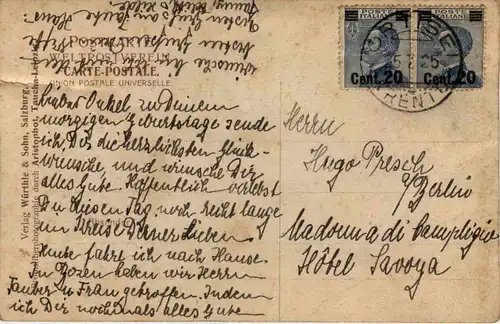 POSTE ITALIANE
POSTE ITALIANE
Cent. 20
Cent. 20
TRENTO
POSTKARTE
WELTPOSTVEREIN
CARTE-POSTALE.
UNION POSTALE UNIVERSELLE.
Verlag Würthle & Sohn, Salzburg.
durch Aristophot, Taucha-Leipzig
Lieber Onkel zu Deinem
morgigen Geburtstage sende
ich Dir die herzlichsten Glück-
wünsche, und wünsche Dir
alles Gute. Hoffentlich verlebst
Du diesen Tag noch recht lange
im Kreise Deiner Lieben.
Heute fahrt ich nach Hause.
In Bozen haben wir Herrn
Tauber u Frau getroffen. Indem
ich Dir nochmals alles Gute
Herrn
Hugo Presch
Berlin
Madonna di Campiglio
Hôtel Savoya